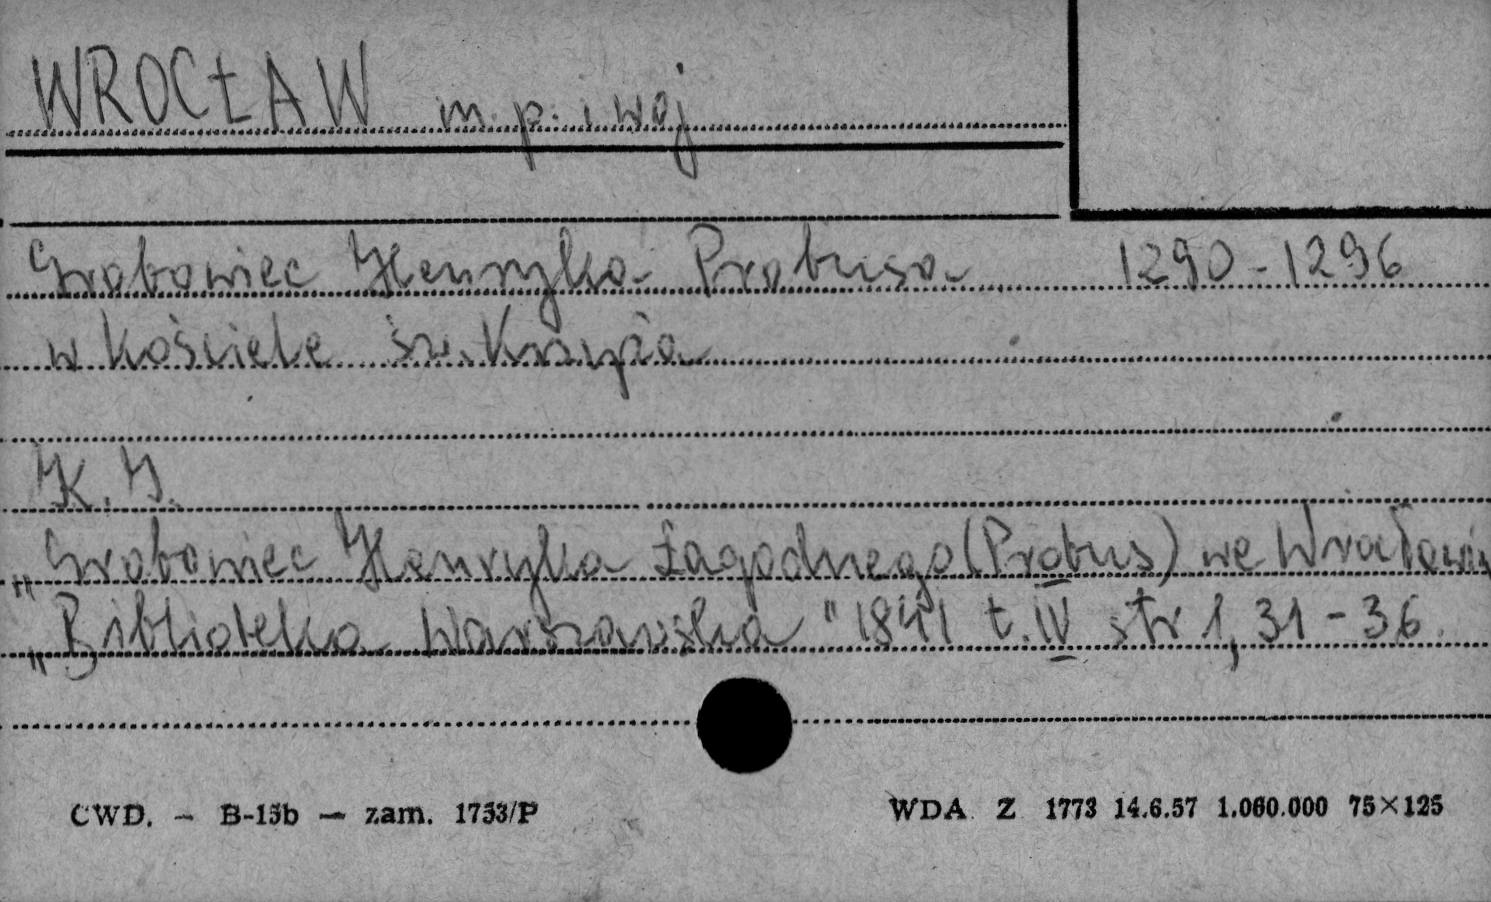 WROCŁAW m. p. i woj
Grobowiec Henryka Probusa 1290-1296
w kościele św. Krzyża
K. J.
„Grobowiec Henryka Łagodnego (Probus) we Wrocławiu
„Biblioteka Warszawska" 1841 t. IV str 1, 31-36.
CWD. — B-15b — zam. 1753/P
WDA Z 1773 14.6.57 1.060.000 75×125